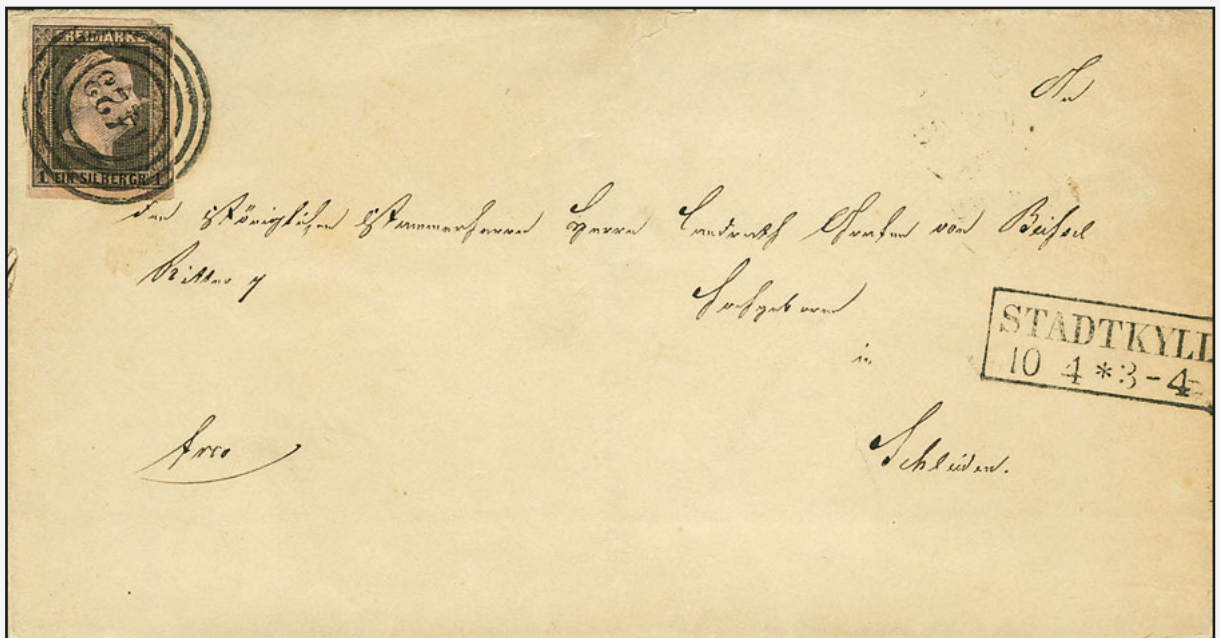 FREIMARKE
1 EIN SILBERGR. 1
An
den Königlichen Kammerherrn Herrn Landrath Grafen von Beissel
Ritter
Hochgeboren
in
STADTKYLL
10 4 * 3-4
frco
Schleiden.